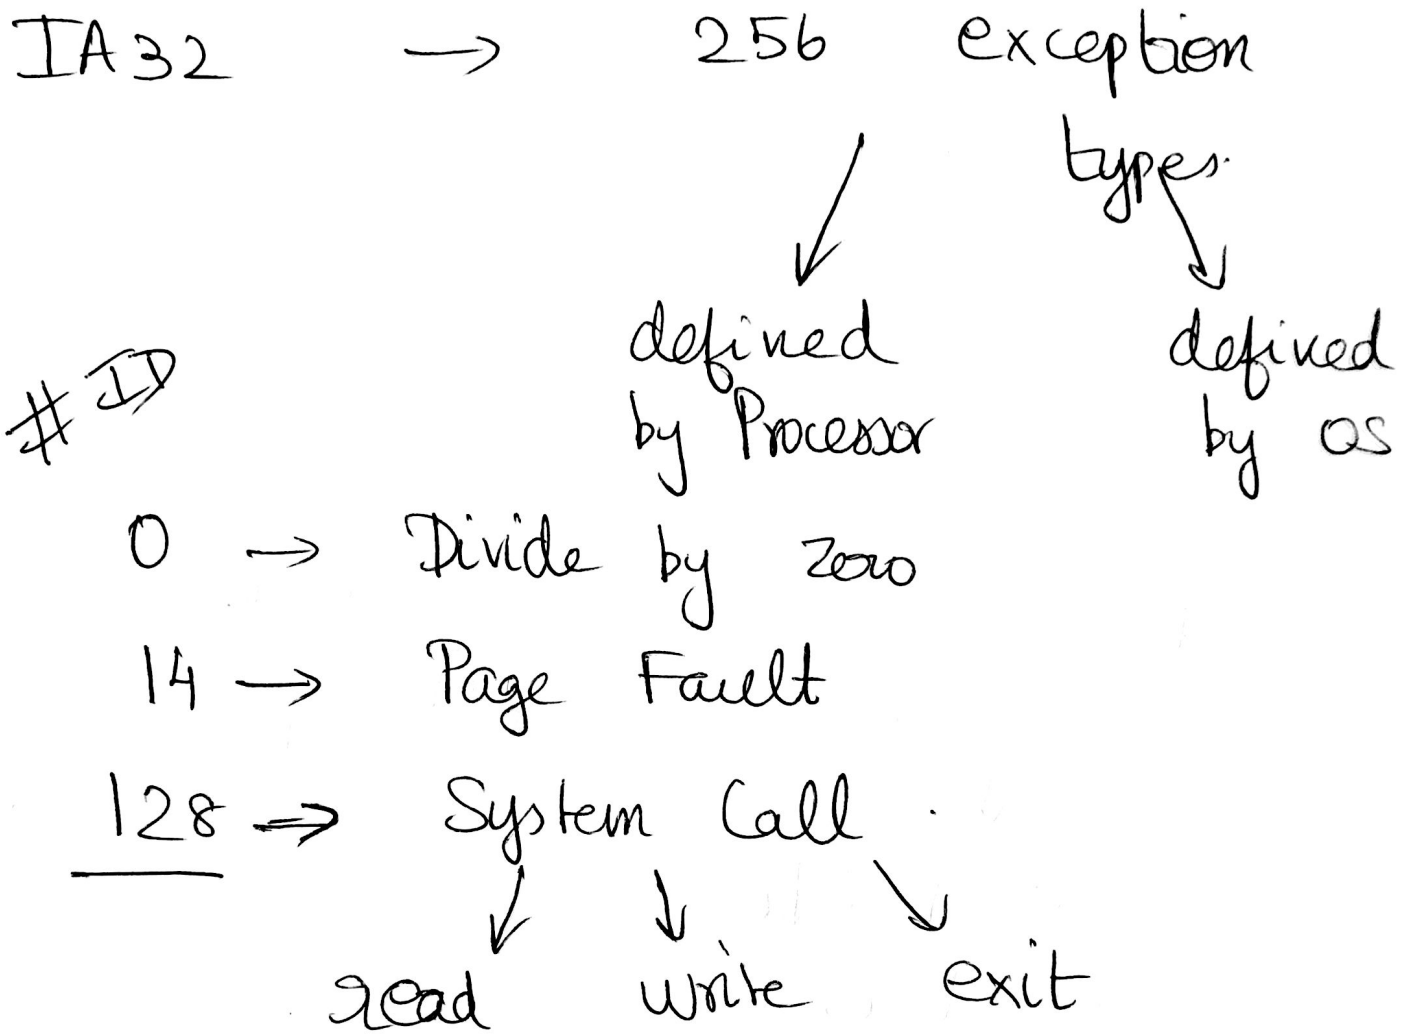 IA32 → 256 exception
types.
defined defined
by Processor by OS
# ID
0 → Divide by zero
14 → Page Fault
128 → System Call
read write exit